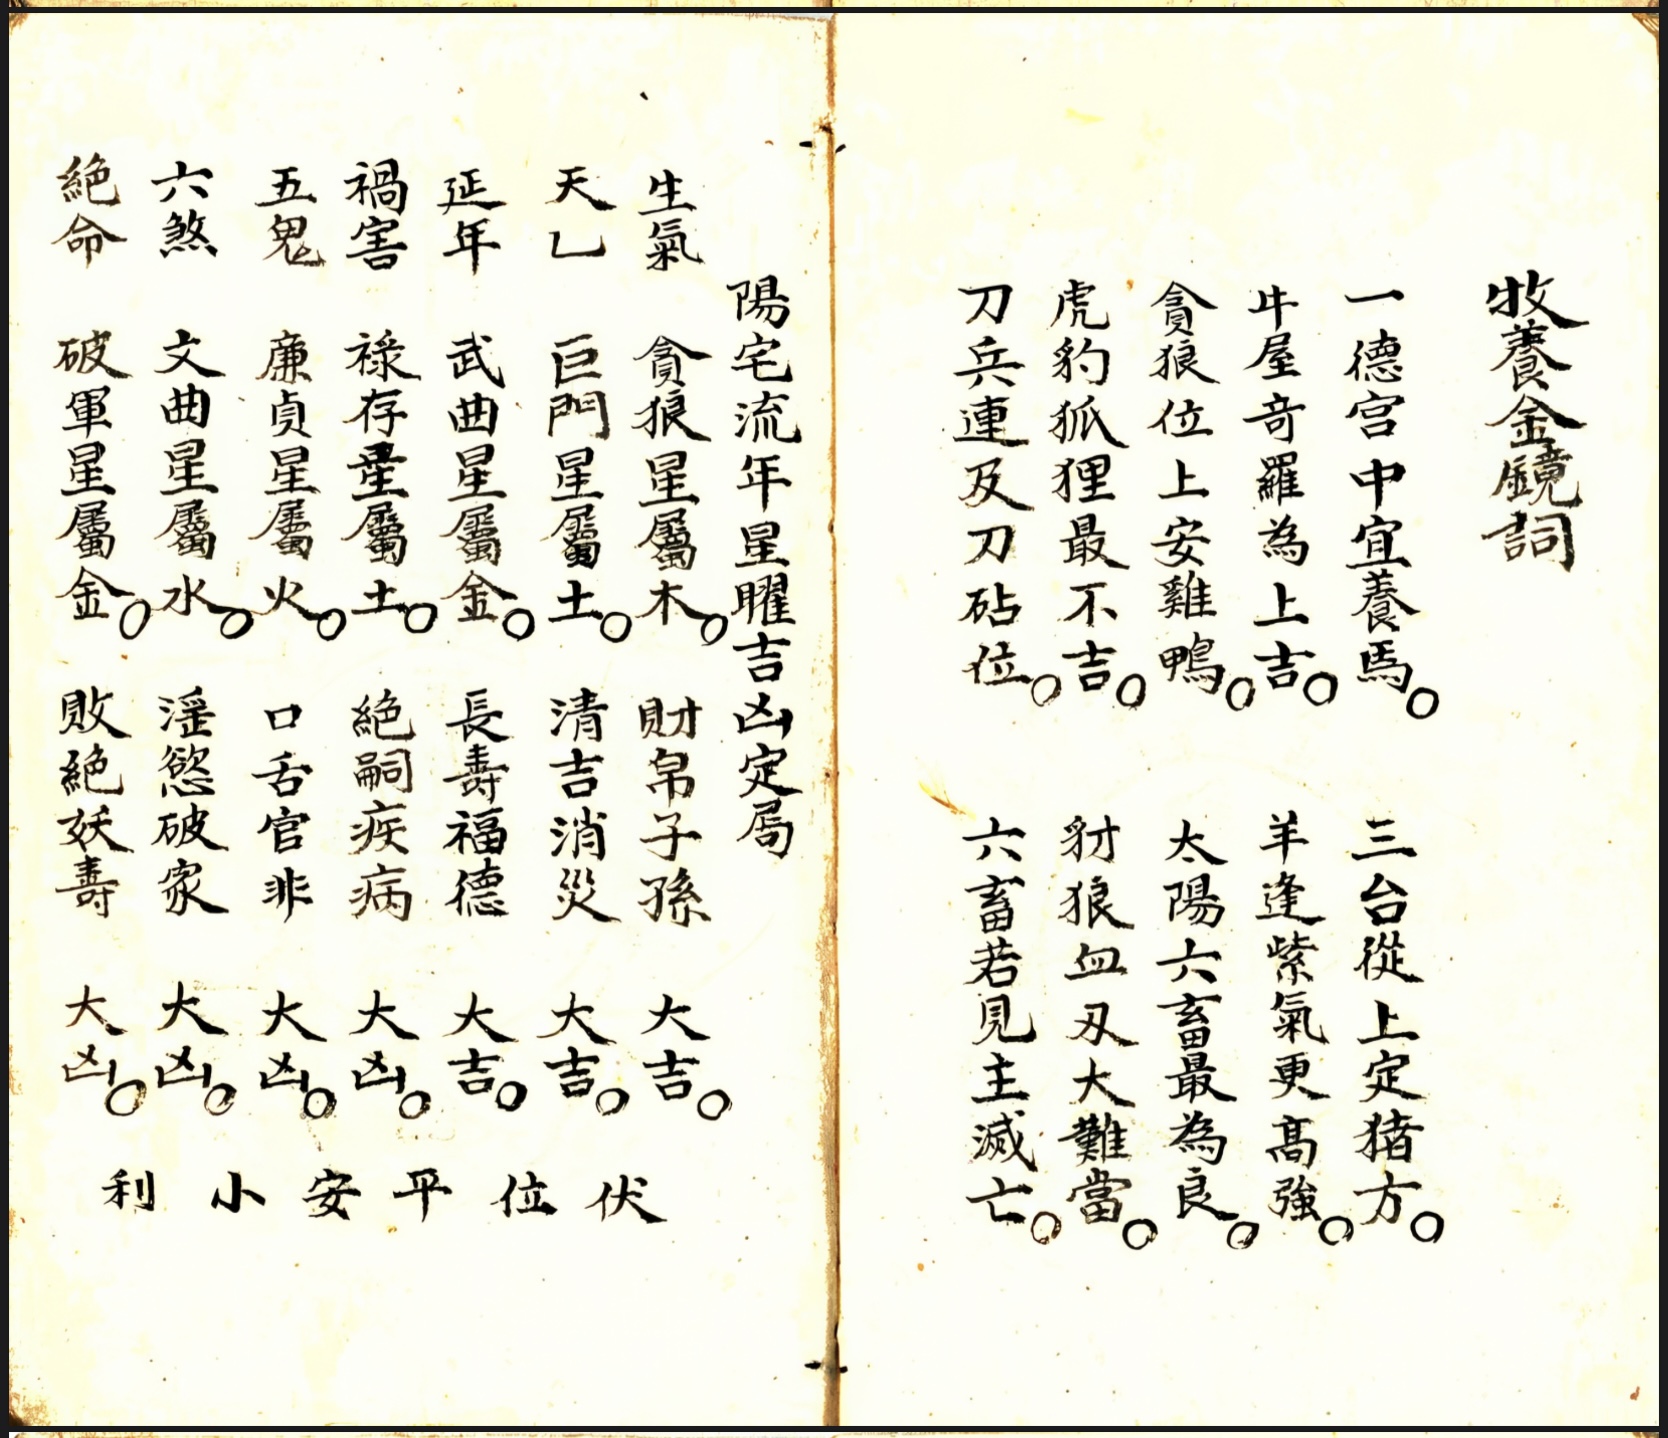 牧養金鏡詞
一德宫中宜養馬○三台從上定猪方○
牛屋奇羅為上吉○羊逢紫氣更高強○
貪狼位上安雞鴨○太陽六畜最為良○
虎豹狐狸最不吉○豺狼血刃大難當○
刀兵連及刀砧位○六畜若見主滅亡○
陽宅流年星曜吉凶定局
生氣 貪狼星屬木○財帛子孫 大吉○
天乙 巨門星屬土○清吉消災 大吉○
延年 武曲星屬金○長壽福德 大吉○
禍害 祿存星屬土○絕嗣疾病 大凶○
五鬼 廉貞星屬火○口舌官非 大凶○
六煞 文曲星屬水○淫慾破家 大凶○
絕命 破軍星屬金○敗絕妖壽 大凶○
伏位平安小利